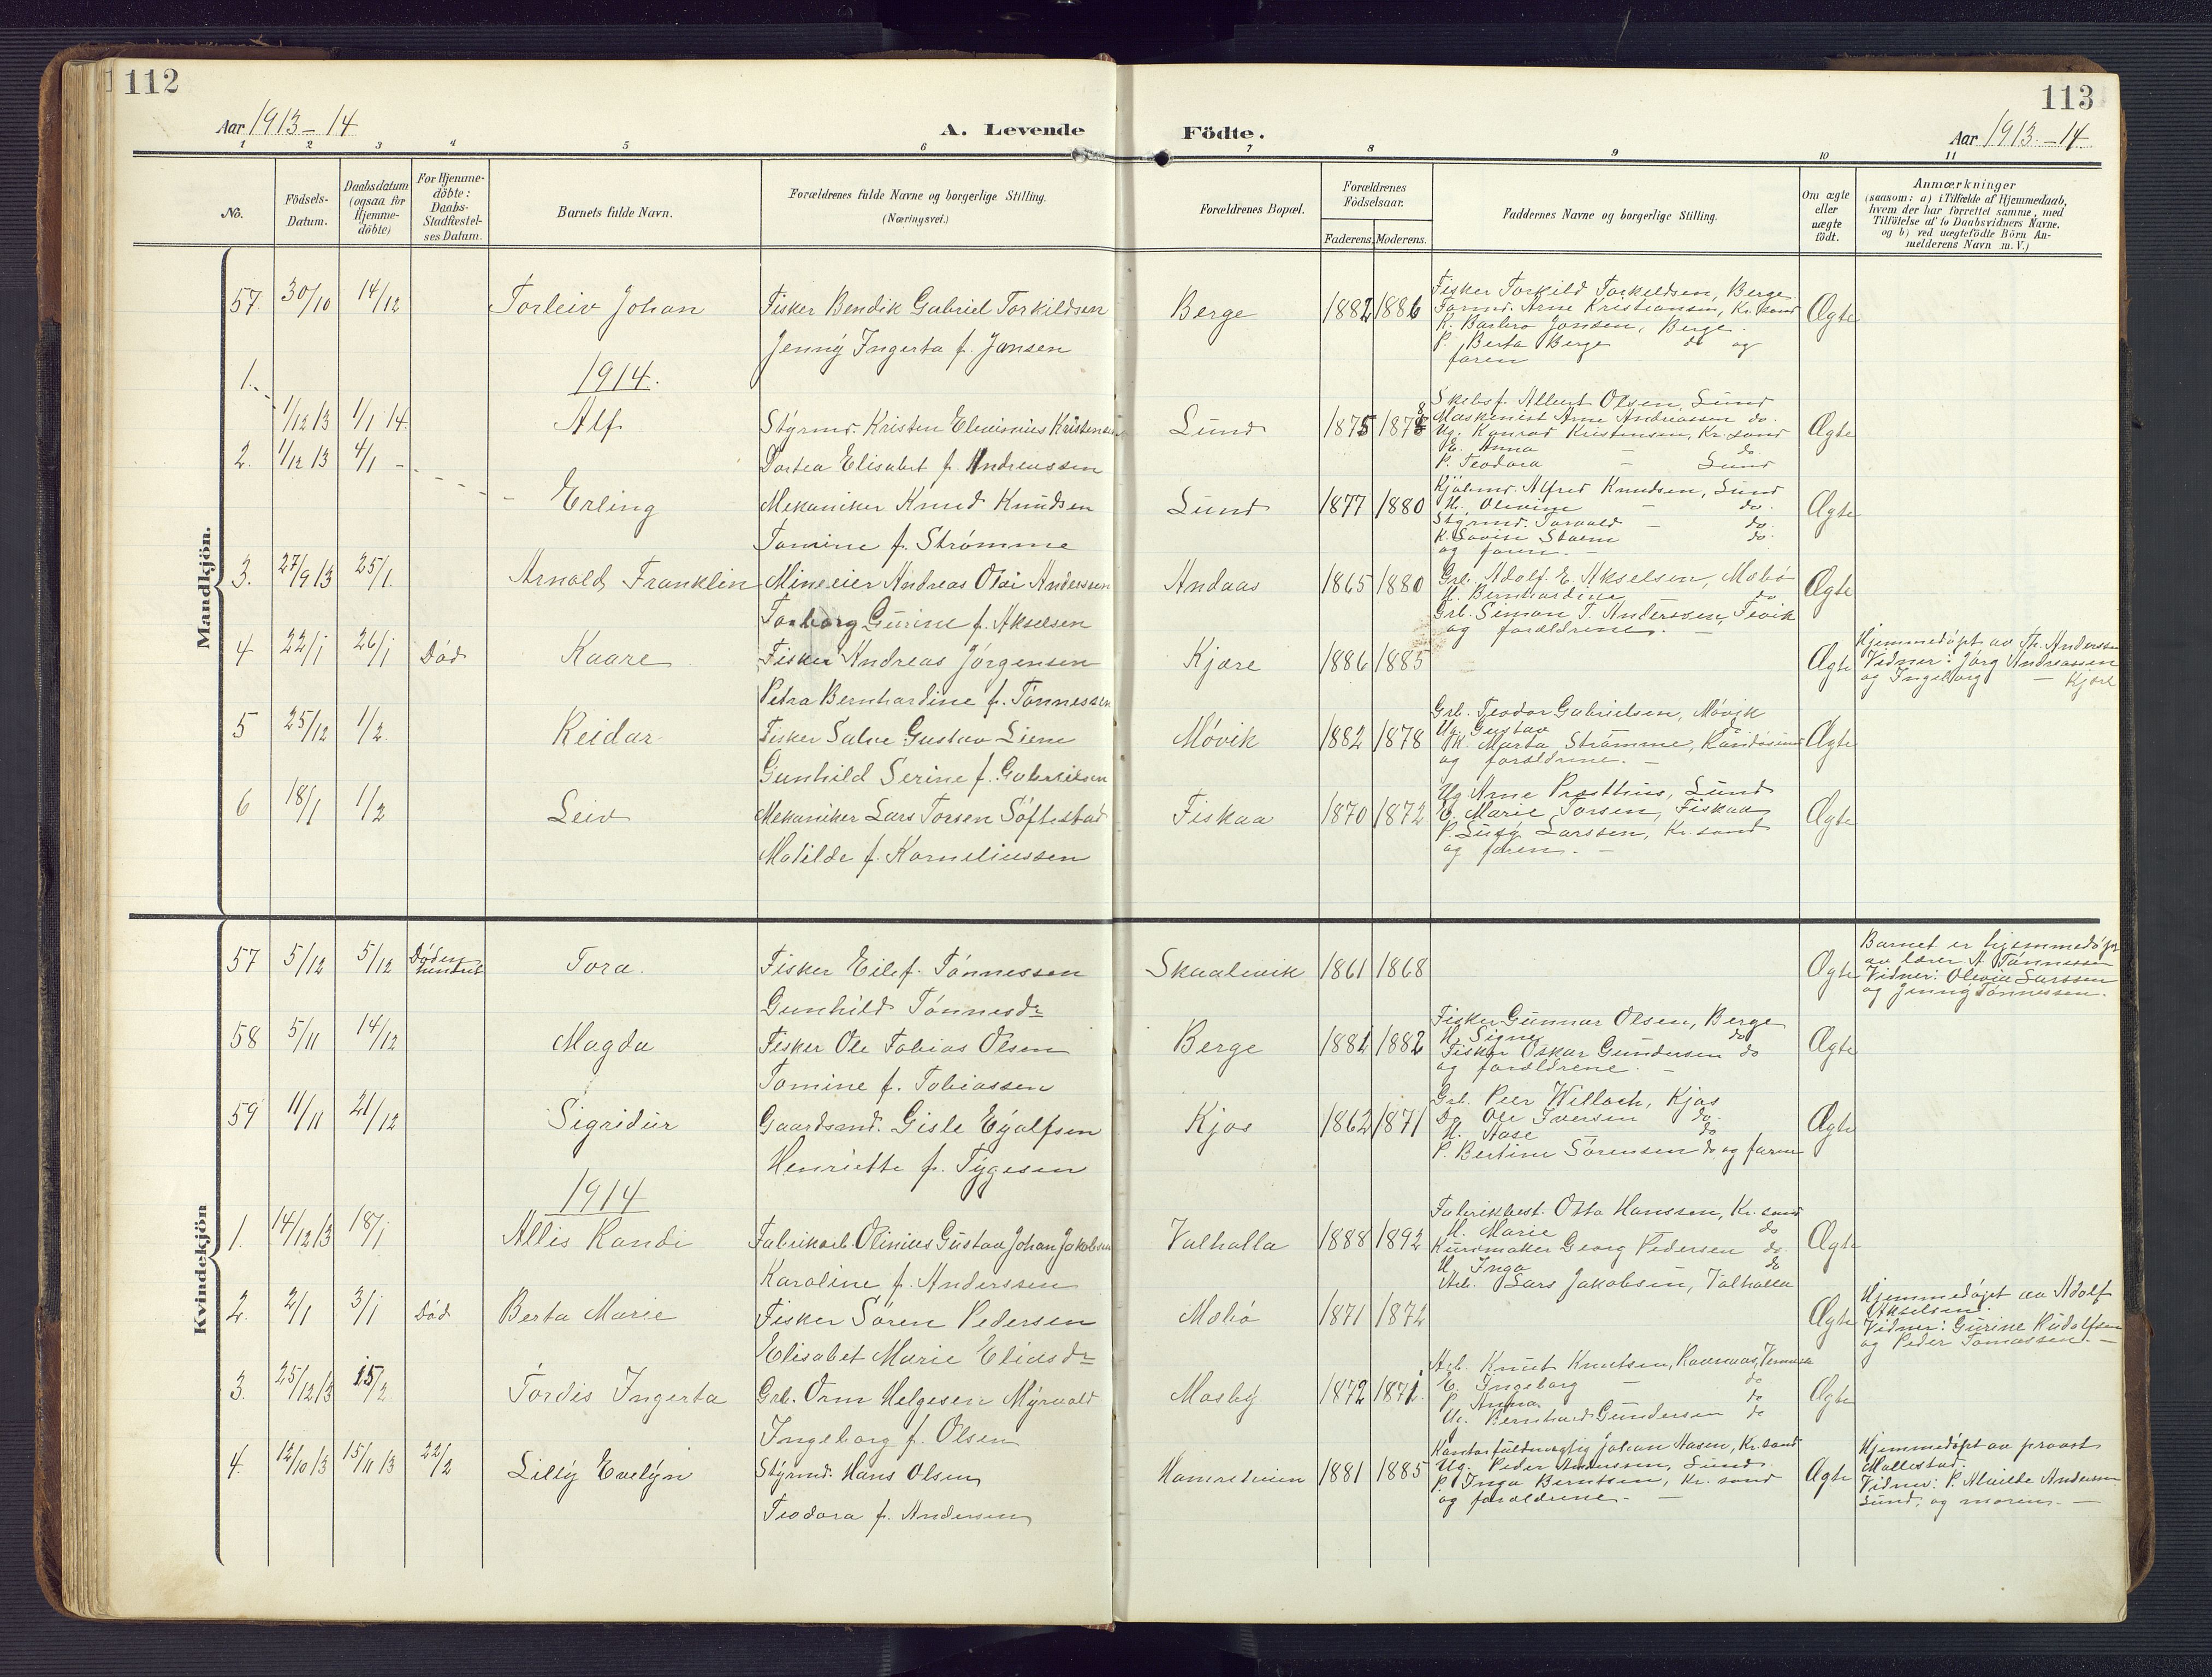 112
113
Aar 1913-14
A. Levende Födte.
Aar 1913.-14
1 2 3 4 5 6 7 8 9 10 11
No.
Födsels-
Datum.
Daabsdatum
(ogsaa for
Hjemme-
döbte)
For Hjemme-
döbte:
Daabs-
Stadfæstel-
ses Datum.
Barnets fulde Navn.
Forældrenes fulde Navne og borgerlige Stilling.
(Næringsvei.)
Forældrenes Bopæl.
Forældrenes
Födselsaar.
Faderens. Moderens.
Faddernes Navne og borgerlige Stilling.
Om ægte
eller
uægte
födt.
Anmærkninger
(saasom: a) i Tilfælde af Hjemmedaab,
hvem der har forrettet samme, med
Tilföielse af to Daabsvidners Navne.
og b) ved uægtefödte Börn An-
melderens Navn m. V.)
Mandkjön.
57. 30/10 14/12 Torleiv Johan
Fisker Bendik Gabriel Torkildsen
Jenny Ingerta f. Jansen
Berge 1882 1886
Fisker Torkild Torkildsen, Berge
Arne Kristiansen, Kr.sand
K. Barbro Jansen, Berge.
P. Berta Berge do og
faren
Ægte
1914.
1. 1/12 13 1/1 14. Alf
Styrmd. Kristen Kristensen
Dortea Elisabet f. Andreassen
Lund 1875 1878
Skibsf. Albert Olsen, Lund
Maskinist Arne Andreassen do.
Ug. Konrad Kristensen, Kr.sand
E. Anna - do
P. Teodora - Lund
Ægte
2. 1/12 13 4/1 - Erling
Mekaniker Knud Knudsen
Tomine f. Strömme
Lund 1877 1880
Alfred Knudsen, Lund
H. Olivine - do.
Styrmd. Torvald - do.
K. Lovise do.
og faren. -
Ægte
3. 27/9 13 25/1. Arnold Franklin
Mineeier Andreas Olai Anderssen
Torborg Gurine f. Akselsen
Andaas 1865 1880
Grb. Adolf E. Akselsen, Mebö
H. Bernhardine do
Grb. Simon T. Anderssen,
og forældrene. -
Ægte
4 22/1 26/1 Död Kaare
Fisker Andreas Jörgensen
Petra Bernhardine f. Tönnessen
Kjære 1886 1885
Ægte
Hjemmedöpt av Th. Anderssen
Vidner: Jörg Andreassen
og Ingeborg - Kjære
5 25/12 1/2. Reidar
Fisker Salve Gustav Liene
Gunhild Serine f. Gabrielsen
Mövik 1882 1878
Grb. Teodor Gabrielsen, Mövik
Ug. Gustav do
K. Marta Strömme, Randösund
og forældrene. -
Ægte
6 18/1 1/2 Leiv
Mekaniker Lars Torsen Söftestad
Matilde f. Korneliussen
Fiskaa 1870 1872
Ug. Arne Præsthus, Lund
E. Marie Torsen, Fiskaa
P. Lussy Larssen, Kr.sand
og faren. -
Ægte
Kvindekjön
57 5/12 5/12 Tora.
Fisker Eilef Tönnessen
Gunhild Tönnesdr
Skaalevik 1861 1868
Ægte
Barnet er hjemmedöpt
av lærer A. Tönnessen
Vidner: Olevia Larssen
og Jenny Tönnessen.
58 5/11 14/12 Magda
Fisker Ole Tobias Olsen
Tomine f. Tobiassen
Berge 1881 1882
Fisker Gunnar Olsen, Berge
H. Signe do
Fisker Oskar Gundersen do
og forældrene. -
Ægte
59 11/11 21/12 Sigridur
Gaardsmd. Gisle Eyolfsen
Henriette f. Tygesen
Kjos 1862 1871
Grb. Peer Willoch, Kjos
Do Ole Iversen do.
H. Aase do
P. Bertine Sörensen do og faren
Ægte
1914
1. 14/12 13 18/1 Allis Randi
Fabrikarb. Olinius Gustav Johan Jakobsen
Karoline f. Anderssen
Valhalla 1888 1892
Fabrikbest. Otto Hanssen, Kr.sand
H. Marie do
Kurvmaker Georg Pedersen do
H. Inga do
Arb. Lars Jakobsen, Valhalla
Ægte
2. 2/1 3/1 Död Berta Marie
Fisker Sören Pedersen
Elisabet Marie Eliasdr
Mebö 1871 1872
Ægte
Hjemmedöpt av Adolf
Akselsen.
Vidner: Gurine Rudolfsen
og Peder Tomassen. -
3. 25/12 13 15/2 Tordis Ingerta
Grb. Orm Helgesen Myrvold
Ingeborg f. Olsen
Mosby 1872 1871
Arb. Knut Knutsen, Ravnaas,
E. Ingeborg - do
P. Anna do
Ug. Bernhard Gundersen do
Ægte
4. 12/10 13 15/11 13 22/2 Lilly Evelyn
Styrmd. Hans Olsen
Teodora f. Andersen
Hamreheien 1881 1885
Kontorfuldmægtig Johan Aasen, Kr.sand
Ug. Peder Anderssen, Lund.
P. Inga Berntsen, Kr.sand
og forældrene. -
Ægte
Hjemmedöpt av provst
Mallestad.
Vidner: P. Alvilde Andersen
Lund. og moren. -